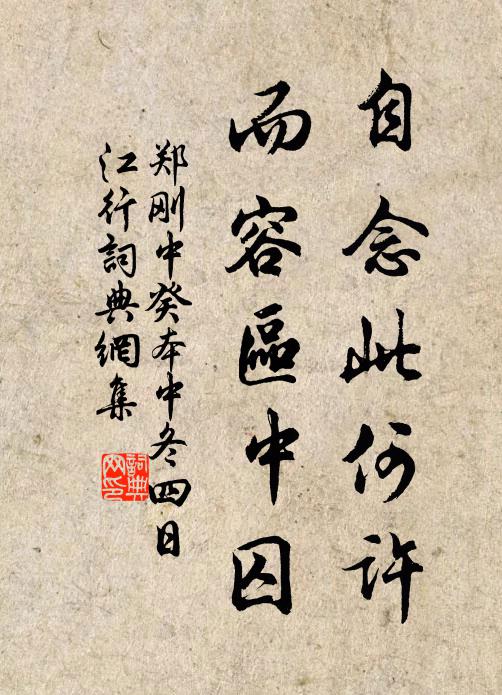 自念此何許
而容區中囚
郑刚中癸本中冬四日
江行詞典網集
詞典
网印